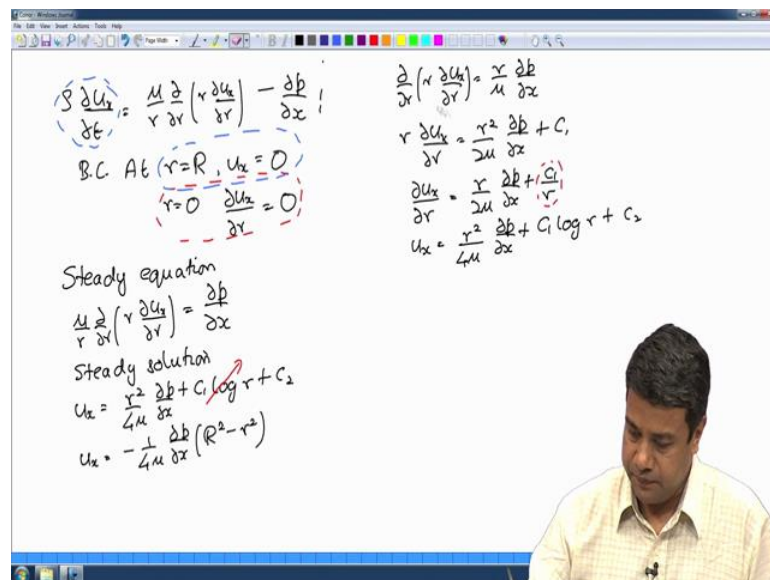 File Edit View Insert Actions Tools Help
Page Width
ρ ∂u_x/∂t = μ/r ∂/∂r (r ∂u_x/∂r) − ∂p/∂x
B.C. At r=R, u_x = 0
r=0 ∂u_x/∂r = 0
Steady equation
μ/r ∂/∂r (r ∂u_x/∂r) = ∂p/∂x
Steady solution
u_x = r²/4μ ∂p/∂x + C₁ log r + C₂
u_x = − 1/4μ ∂p/∂x (R² − r²)
∂/∂r (r ∂u_x/∂r) = r/μ ∂p/∂x
r ∂u_x/∂r = r²/2μ ∂p/∂x + C₁
∂u_x/∂r = r/2μ ∂p/∂x + C₁/r
u_x = r²/4μ ∂p/∂x + C₁ log r + C₂